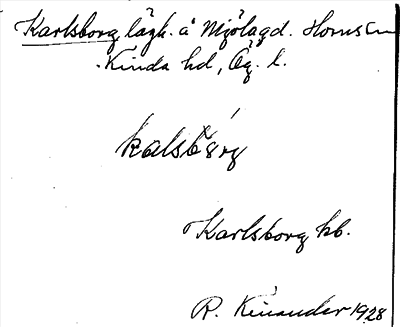 Karlsborg lägh. å Mjölagd. Horns sn
Kinda hd, Ög. l.
kalsbórg
Karlsborg hb.
R. Kinander 1928